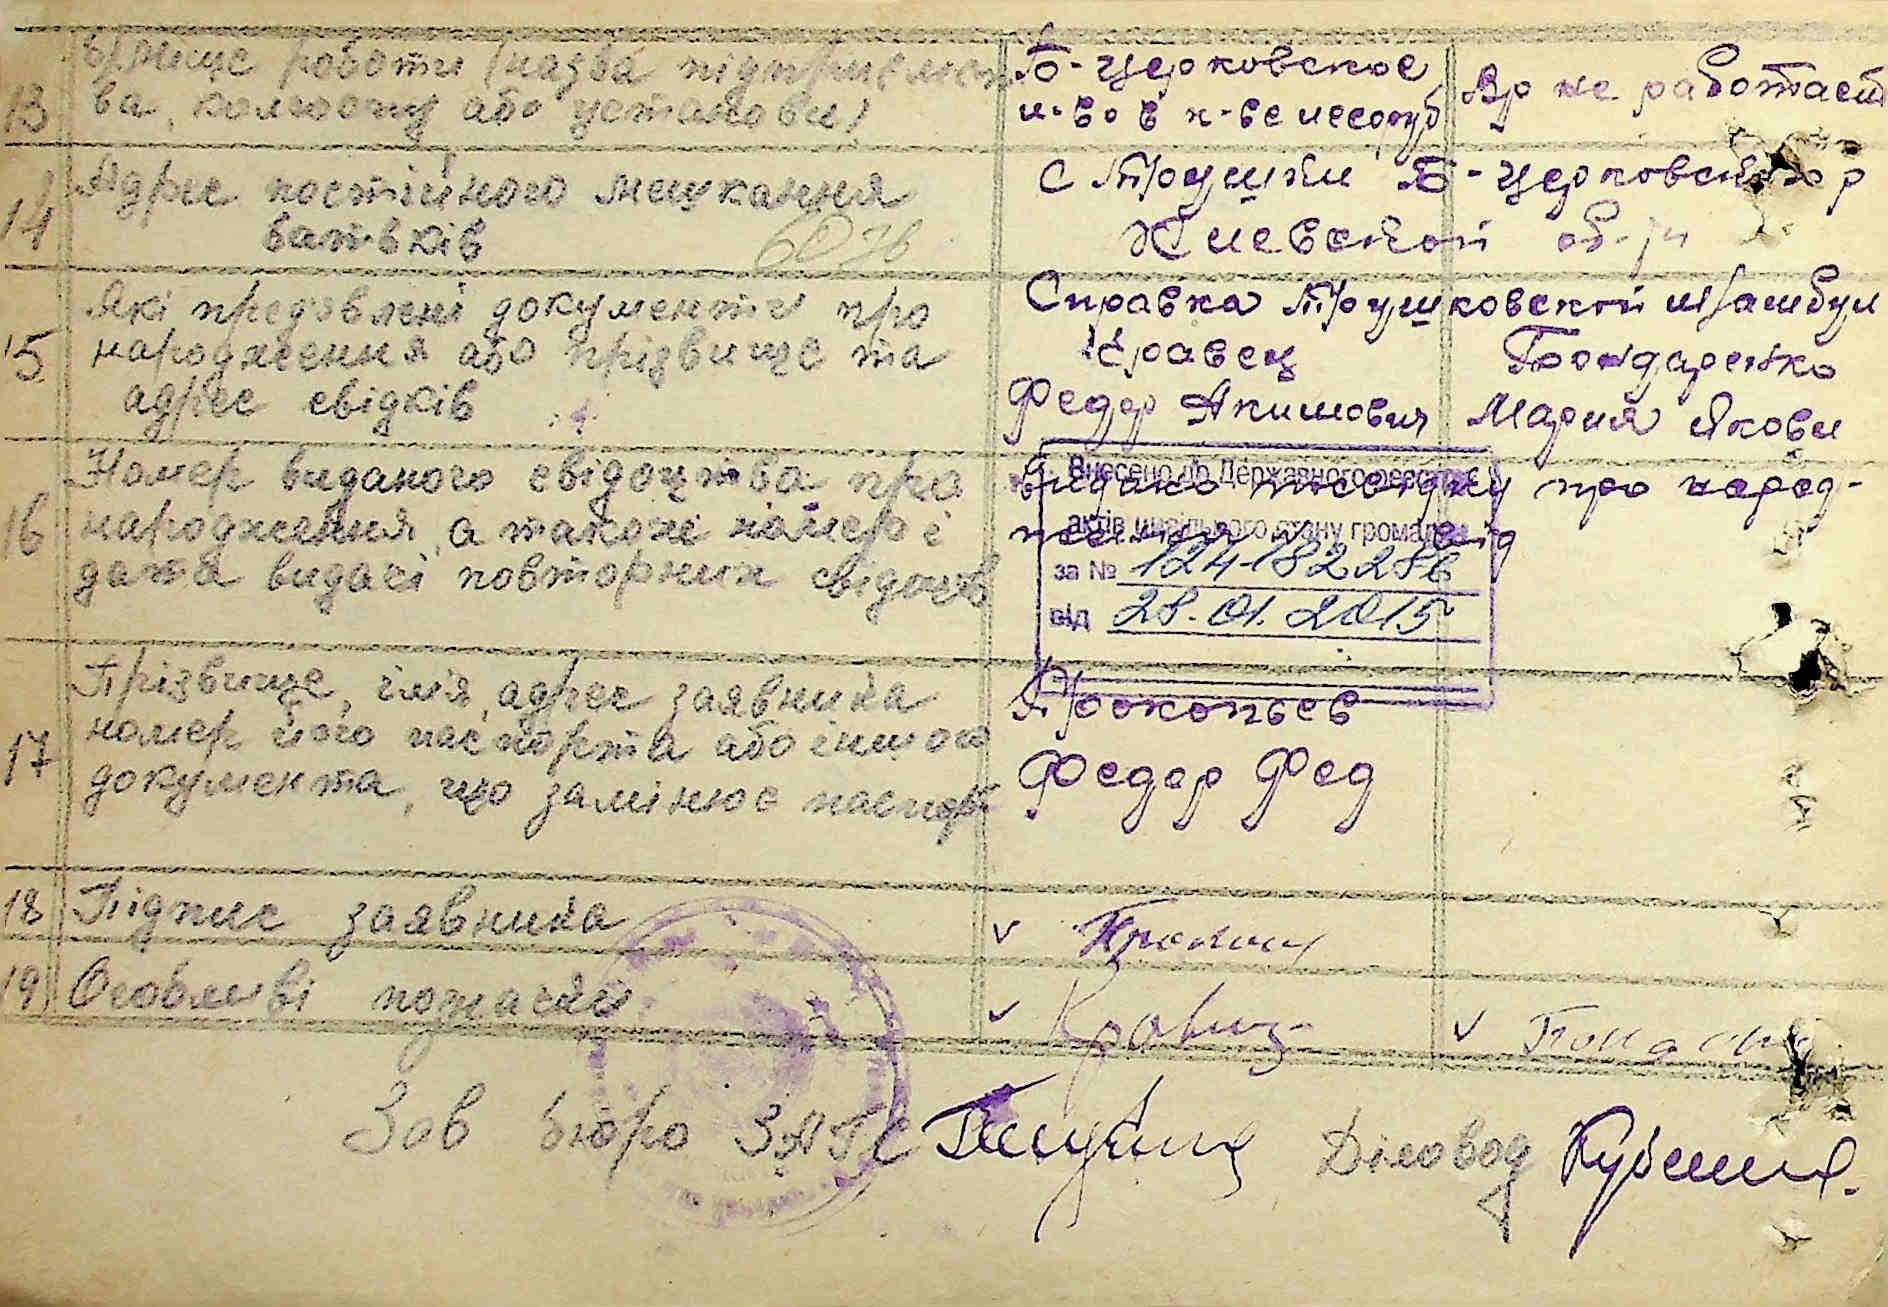 13 Місце роботи (назва підприємст-
ва, колгоспу або установи)
Б-Церковское
Вр не работает
14 Адрес постійного мешкання
батьків
с Трушки Б-Церковского р
Киевской об-ти
15 Які пред'явлені документи про
народження або прізвище та
адрес свідків
Справка Трушковской
Кравец
Федор Акимович
Бондаренко
Мария Якови
16 Номер виданого свідоцтва про
народження, а також номер і
дата видачі повторних свідоцтв
видано про народ-
Внесено до Державного реєстру
актів цивільного стану громадян
за № 12418228
від 28.01.2015
17 Прізвище, ім'я, адрес заявника
номер його паспорта або іншого
документа, що замінює паспорт
Прокопьев
Федор Фед
18 Підпис заявника
v
19 Особливі
v Кравец
v
Зав бюро ЗАГС
Діловод